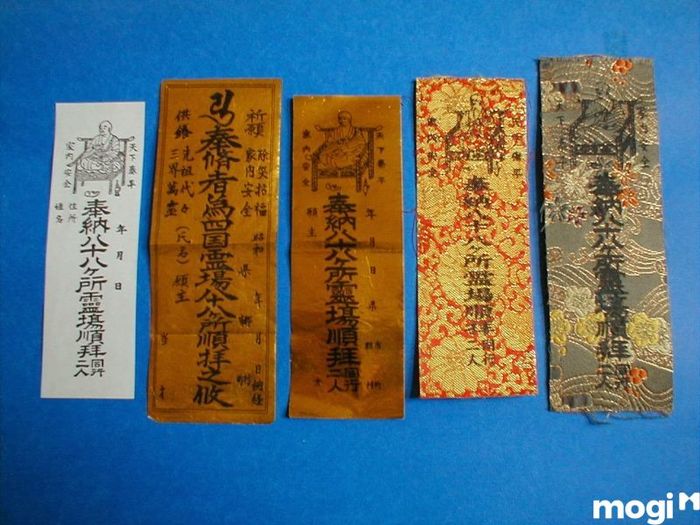 天下泰平
家内安全
年 月 日
奉納八十八ヶ所霊場順拝同行二人
住所
姓名
祈願
除災招福
家内安全
昭和 年 月 日
奉修者為四国霊場八十八ヶ所順拝之攸
供養
先祖代々
三界萬霊
(氏名)
願主
天下泰平
家内安全
年 月 日
奉納八十八ヶ所霊場順拝同行二人
願主
奉納八十八ヶ所霊場順拝同行二人
mogi